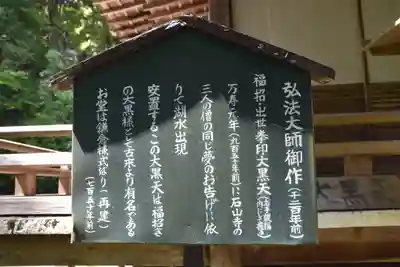 弘法大師御作(千二百年前)
福招・出世拳印大黒天
万寿元年(九百五十年前)に石山寺の
三人の僧の同じ夢のお告げに依
りて湖水出現
安置するこの大黒天は福招き
の大黒様として古来より有名である
お堂は鎌倉様式なり(再建)
(七百五十年前)